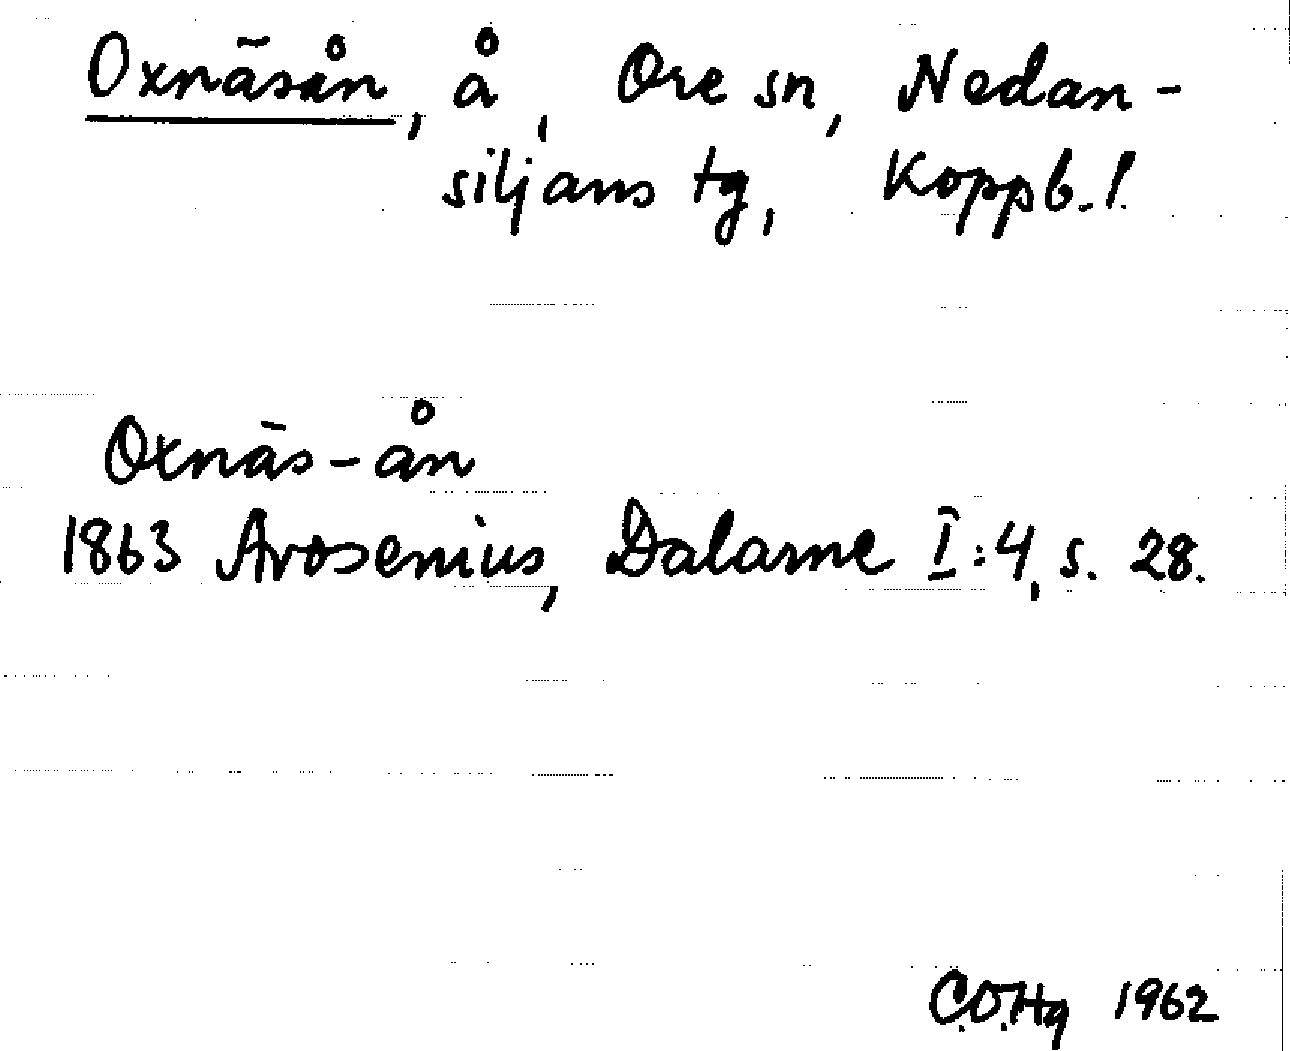 Oxnäsån, å, Ore sn, Nedan-
siljans tg, Koppb. l.
Oxnäs-ån
1863 Arosenius, Dalarne I:4, s. 28.
C.O.Hq 1962